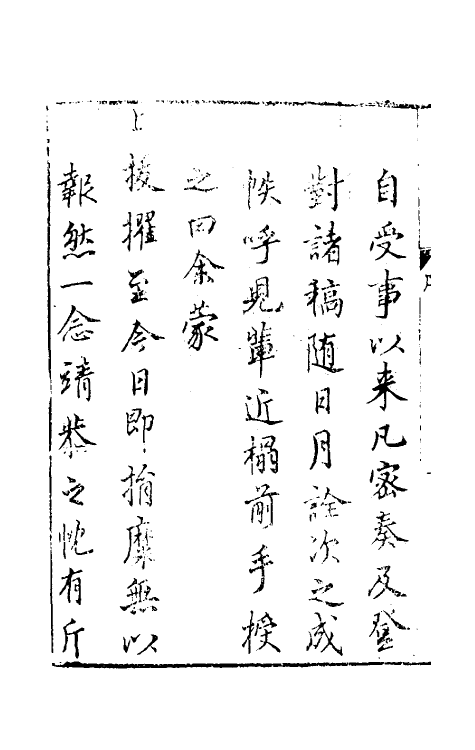 自受事以来凡密奏及登
對諸稿随日月詮次之成
帙呼兒輩近榻前手授
之曰余蒙
上拔擢至今日即捐糜無以
報然一念靖恭之忱有斤